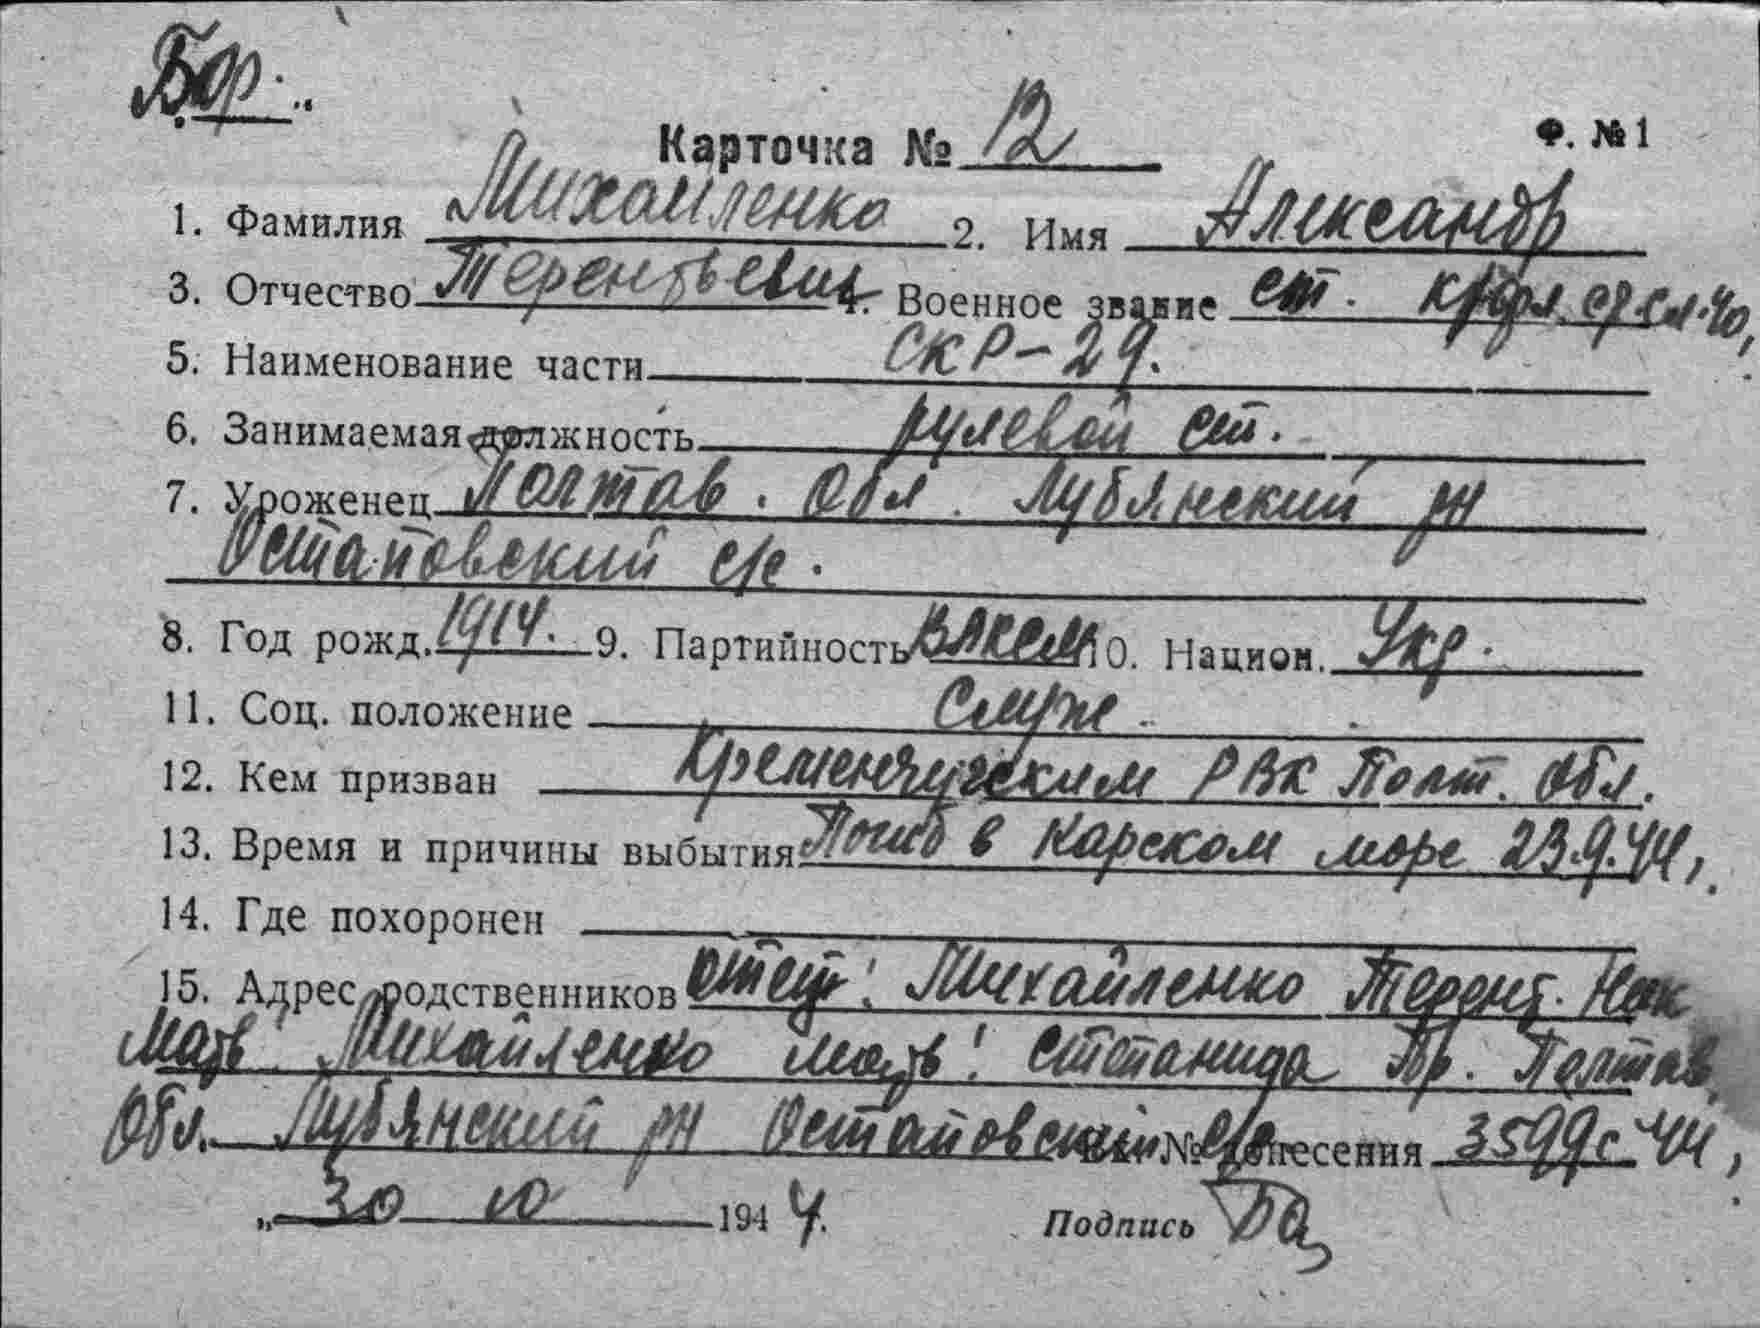 Бор.
Карточка № 12 Ф. № 1
1. Фамилия Михайленко 2. Имя Александр
3. Отчество Терентьевич 4. Военное звание ст. кр-фл. ср. сл. 40,
5. Наименование части СКР-29.
6. Занимаемая должность рулевой ст.
7. Уроженец Полтав. обл. Лубянский рн
Остаповский с/с.
8. Год рожд. 1914. 9. Партийность ВЛКСМ 10. Национ. Укр.
11. Соц. положение Служ.
12. Кем призван Кременчугским РВК Полт. обл.
13. Время и причины выбытия Погиб в Карском море 23.9.44,
14. Где похоронен
15. Адрес родственников отец: Михайленко Терент. Иак
Мать Михайленко мать: Степанида Пр. Полтав
обл. Лубянский рн Остаповский с/с № донесения 3599с 44,
„ 30 10 1944.
Подпись